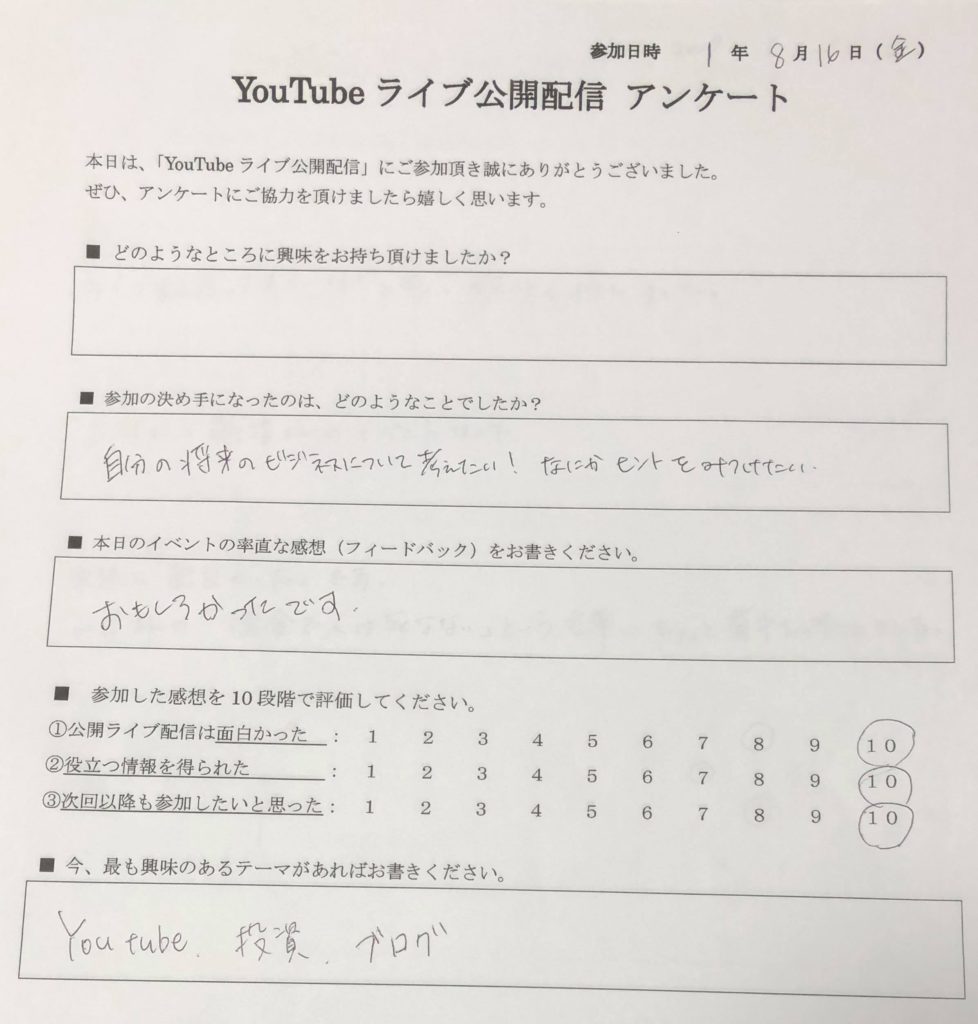 参加日時 1 年 8 月 16 日 ( 金 )
YouTube ライブ公開配信 アンケート
本日は、「YouTube ライブ公開配信」にご参加頂き誠にありがとうございました。
ぜひ、アンケートにご協力を頂けましたら嬉しく思います。
■ どのようなところに興味をお持ち頂けましたか？
■ 参加の決め手になったのは、どのようなことでしたか？
自分の将来のビジネスについて考えたい！ なにかヒントをみつけたい.
■ 本日のイベントの率直な感想（フィードバック）をお書きください。
おもしろかったです.
■ 参加した感想を 10 段階で評価してください。
①公開ライブ配信は面白かった : 1 2 3 4 5 6 7 8 9 10
②役立つ情報を得られた : 1 2 3 4 5 6 7 8 9 10
③次回以降も参加したいと思った : 1 2 3 4 5 6 7 8 9 10
■ 今、最も興味のあるテーマがあればお書きください。
Youtube. 投資. ブログ